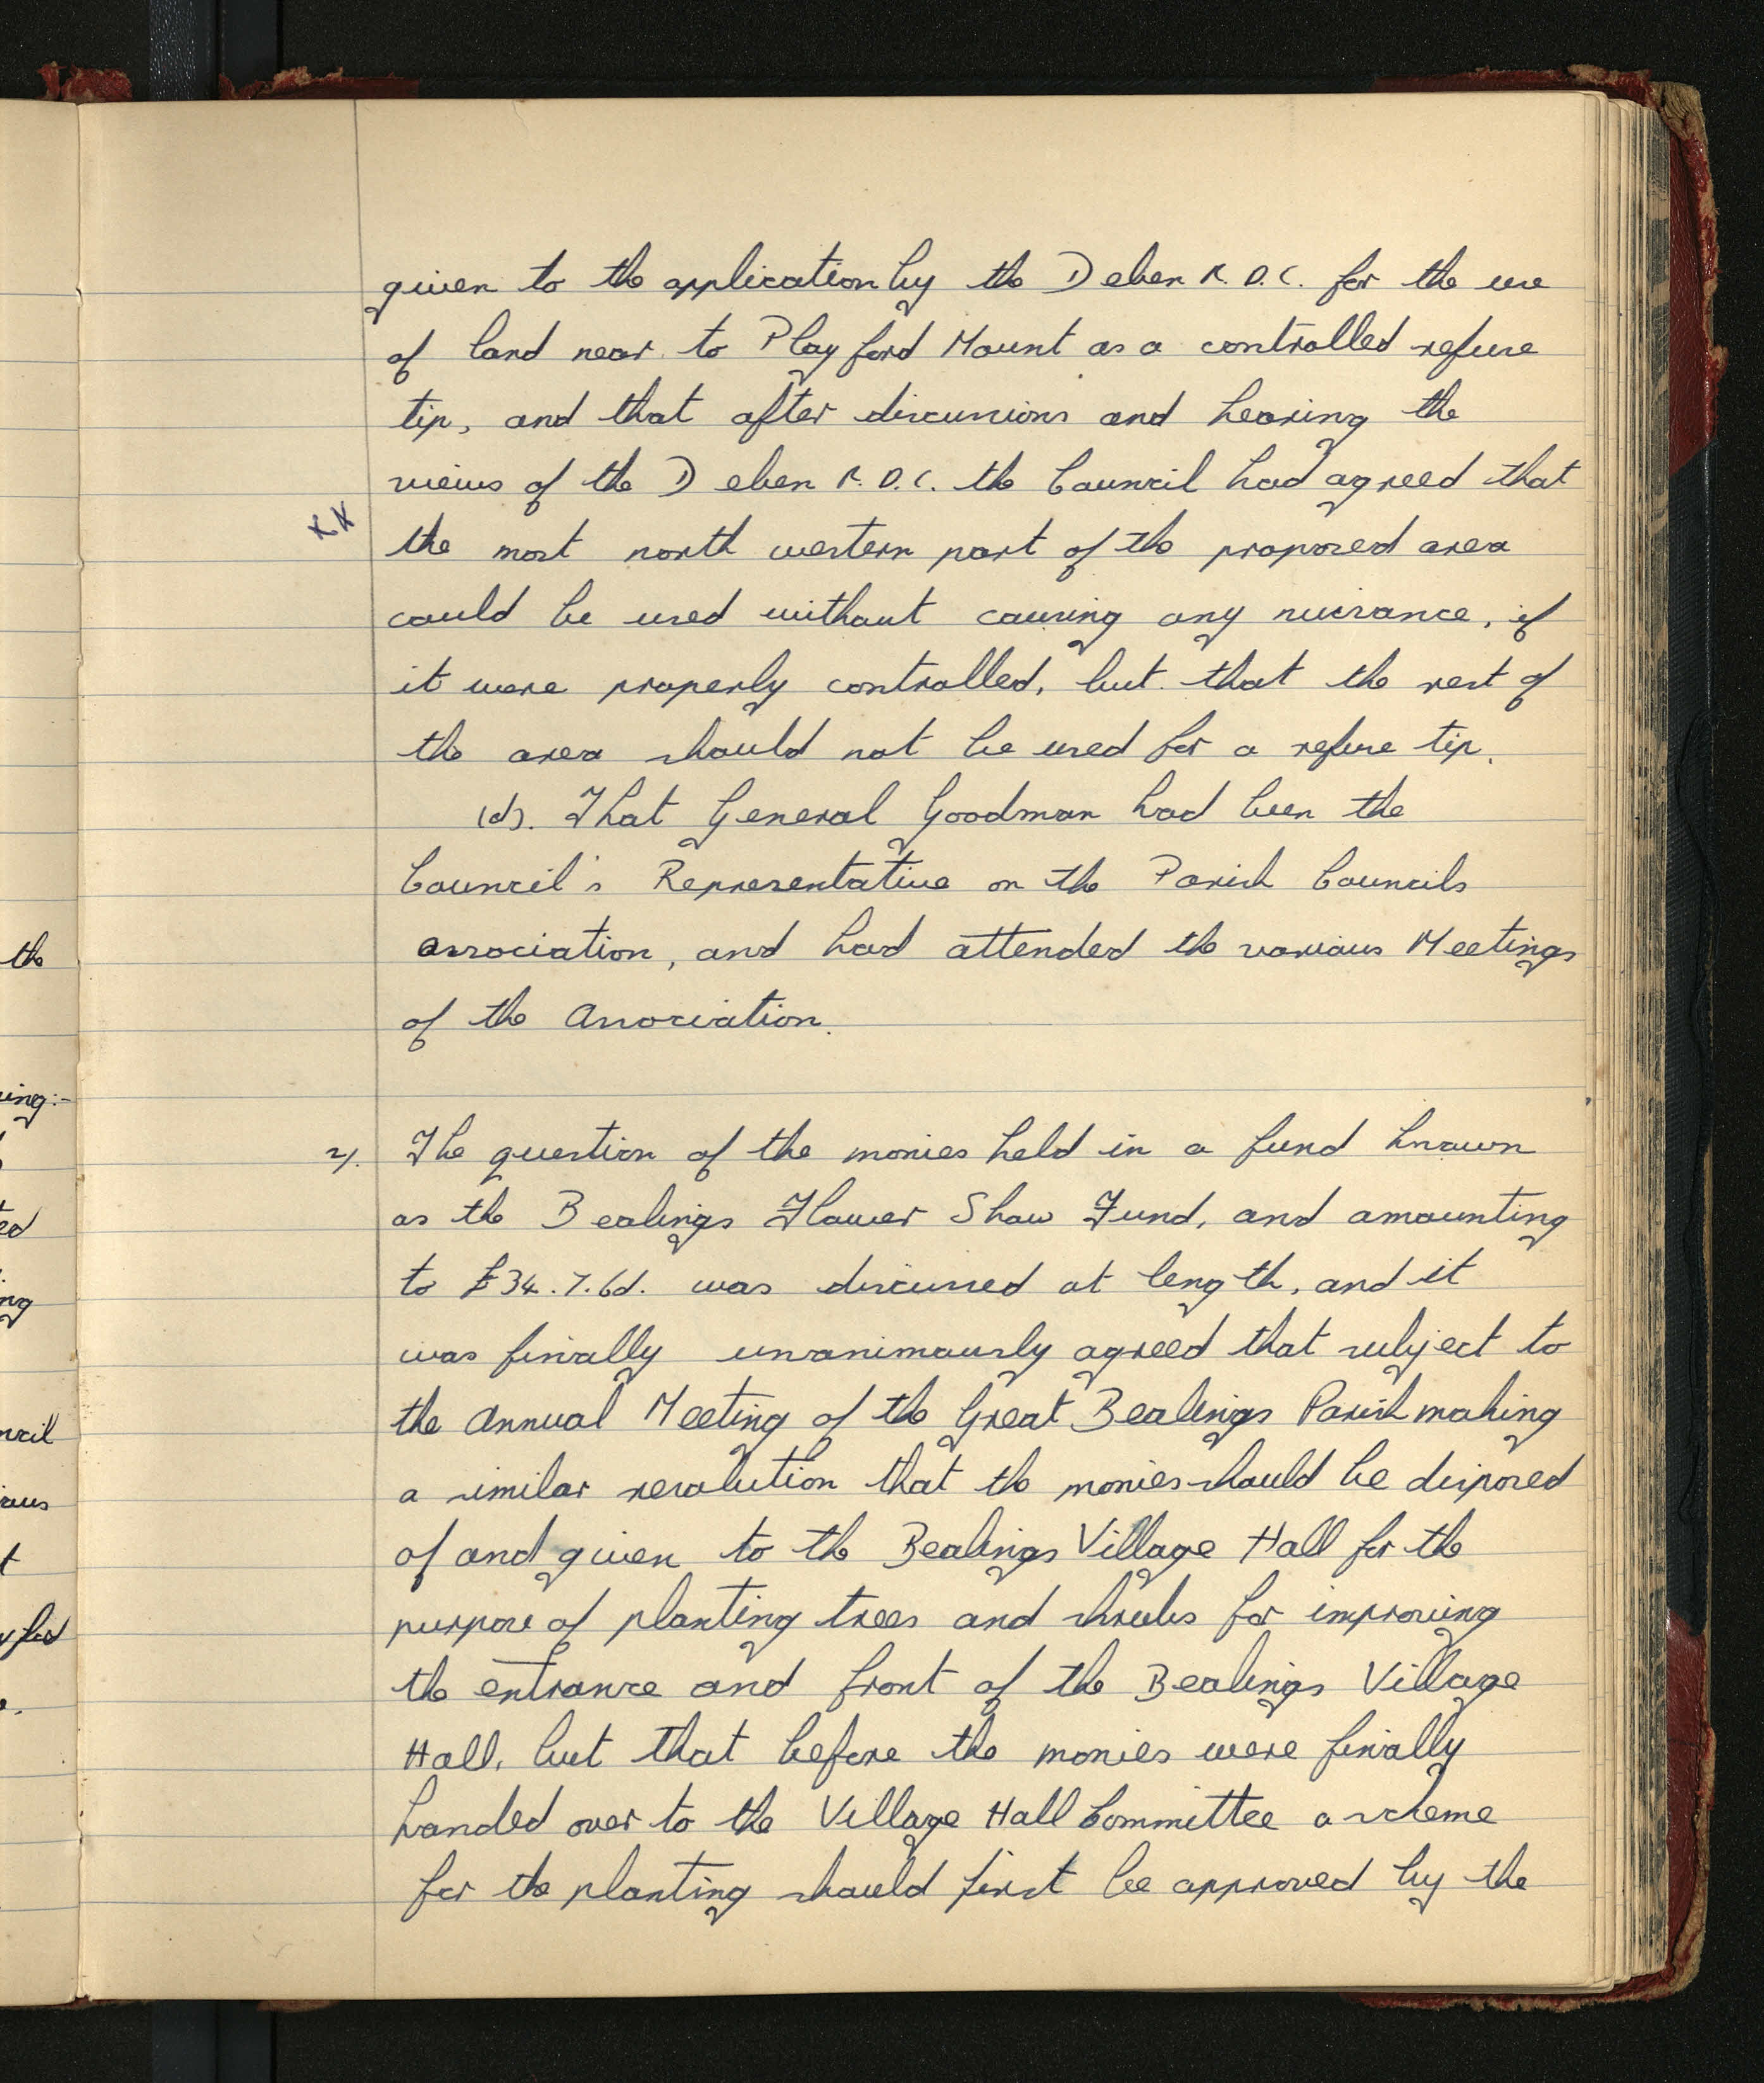 given to the application by the Deben R.D.C. for the use
of land near to Playford Mount as a controlled refuse
tip, and that after discussions and hearing the
views of the Deben R.D.C. the Council had agreed that
xx
the most north western part of the proposed area
could be used without causing any nuisance, if
it were properly controlled, but that the rest of
the area should not be used for a refuse tip.
(d). That General Goodman had been the
Council's Representative on the Parish Councils
association, and had attended the various Meetings
of the Association.
2/. The question of the monies held in a fund known
as the Bealings Flower Show Fund, and amounting
to £34.7.6d. was discussed at length, and it
was finally unanimously agreed that subject to
the Annual Meeting of the Great Bealings Parish making
a similar resolution that the monies should be disposed
of and given to the Bealings Village Hall for the
purpose of planting trees and shrubs for improving
the entrance and front of the Bealings Village
Hall, but that before the monies were finally
handed over to the Village Hall Committee a scheme
for the planting should first be approved by the
the
ing:-
ed
ing
ncil
ious
t